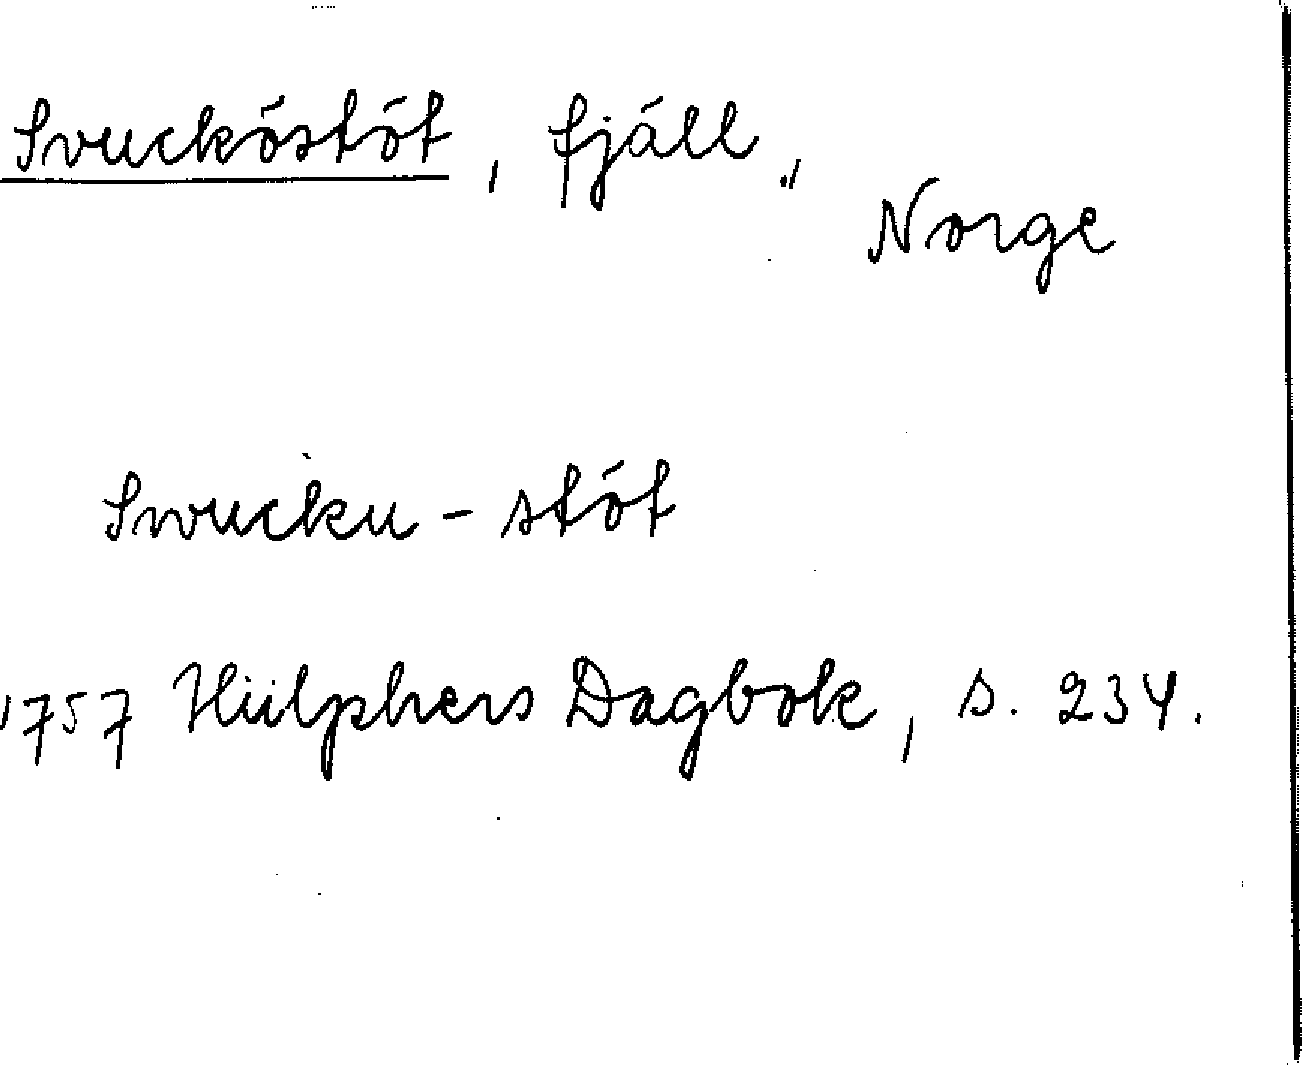 Svucköstöt, fjäll,
Norge
Swucku-stöt
1757 Hülphers Dagbok, s. 234.